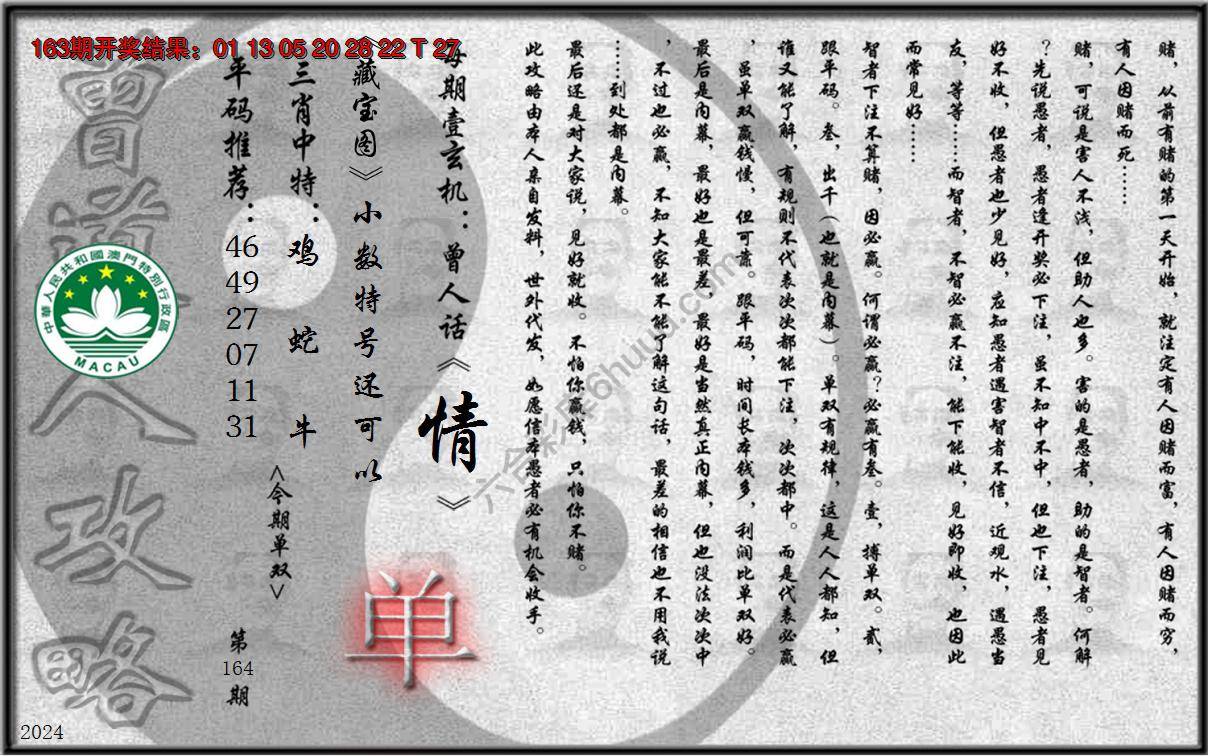 163期开奖结果：01 13 05 20 28 22 T 27
赌，从前有赌的第一天开始，就注定有人因赌而富，有人因赌而穷，
有人因赌而死……
赌，可说是害人不浅，但助人也多。害的是愚者，助的是智者。何解
？先说愚者，愚者逢开奖必下注，虽不知中不中，但也下注，愚者见
好不收，但愚者也少见好，应知愚者遇害智者不信，近观水，遇愚当
友，等等……而智者，不智必赢不注，能下能收，见好即收，也因此
而常见好……
智者下注不算赌，因必赢。何谓必赢？必赢有叁。壹，搏单双。贰，
跟平码。叁，出千（也就是内幕）。单双有规律，这是人人都知，但
谁又能了解，有规则不代表次次都能下注，次次都中。而是代表必赢
，虽单双赢钱慢，但可靠。跟平码，时间长本钱多，利润比单双好。
最后是内幕，最好也是最差，最好是当然真正内幕，但也没法次次中
，不过也必赢，不知大家能不能了解这句话，最差的相信也不用我说
……到处都是内幕。
最后还是对大家说，见好就收。不怕你赢钱，只怕你不赌。
此攻略由本人亲自发料，世外代发，如愿信本愚者必有机会收手。
每期壹玄机：曾人话《情》
《藏宝图》小数特号还可以
单
三肖中特：鸡 蛇 牛
<今期单双>
平码推荐：46 49 27 07 11 31
第164期
曾道人攻略
中華人民共和國澳門特別行政區
MACAU
六合彩库66huuu.com
2024